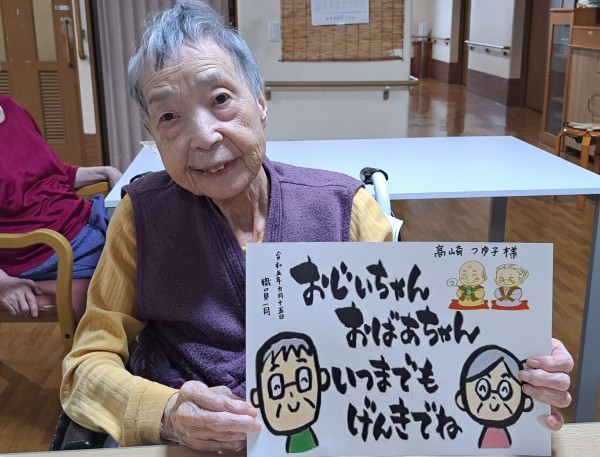 髙山崎 つゆ子 様
おじいちゃん
おばあちゃん
いつまでも
げんきでね
令和五年九月十五日
職員一同